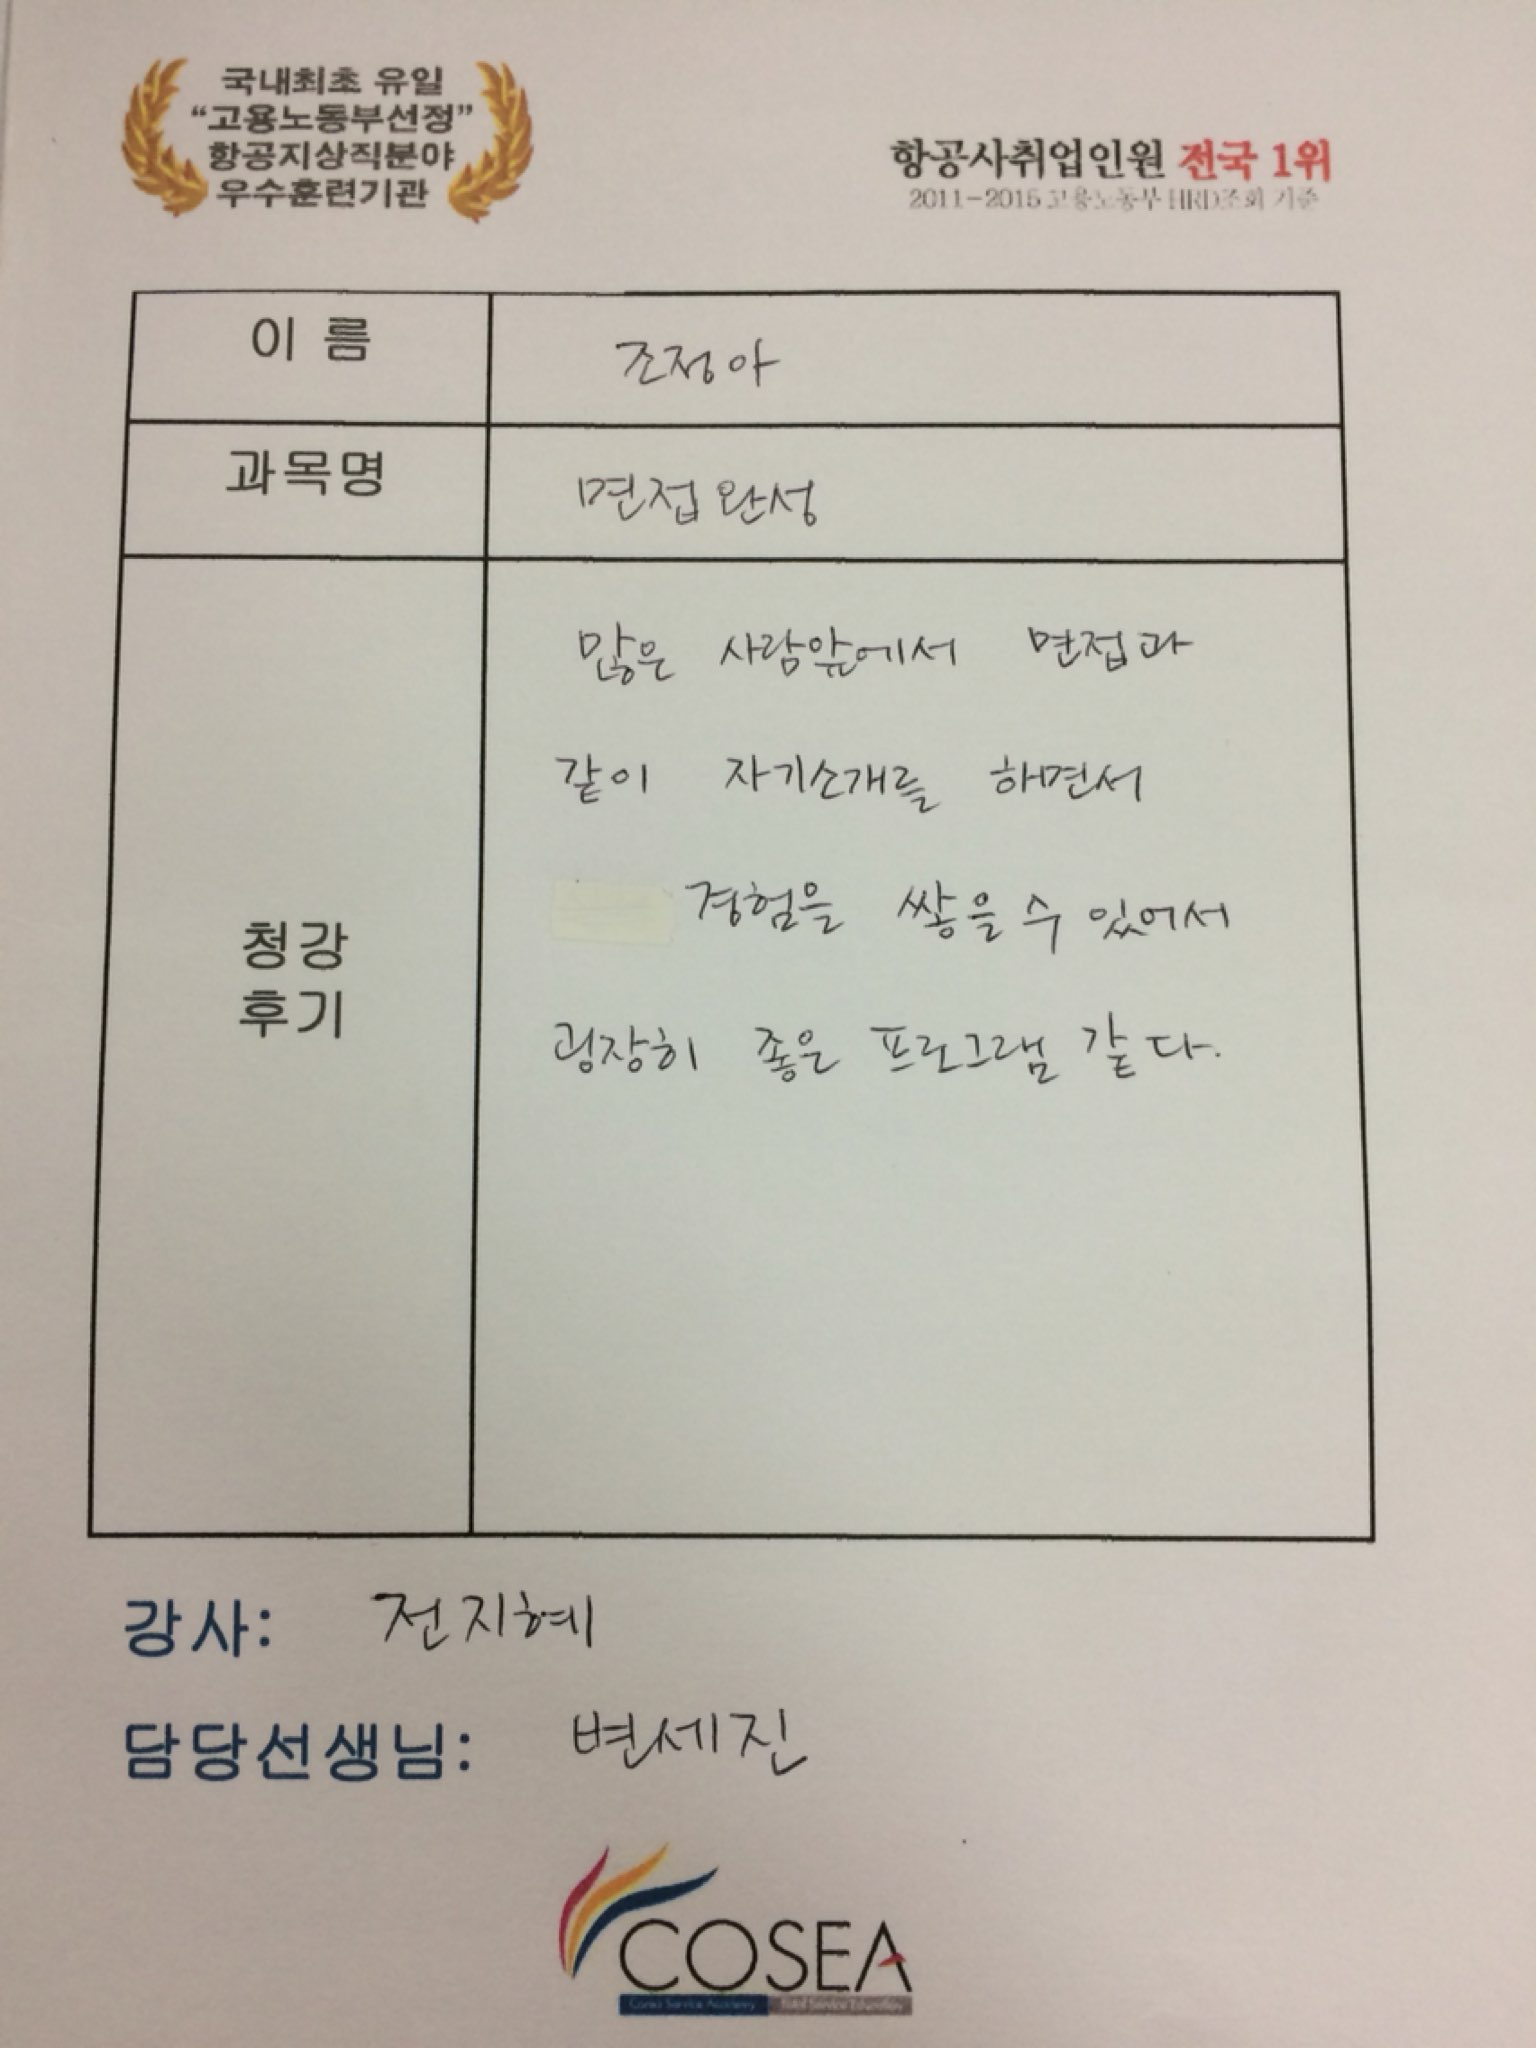 국내최초 유일
“고용노동부선정”
항공지상직분야
우수훈련기관
항공사취업인원 전국 1위
2011-2015 고용노동부 HRD조회 기준
이 름
조정아
과목명
면접 완성
청강
후기
많은 사람앞에서 면접과
같이 자기소개를 하면서
경험을 쌓을 수 있어서
굉장히 좋은 프로그램 같다.
강사: 전지혜
담당선생님: 변세진
COSEA
Corea Service Academy Total Service Education